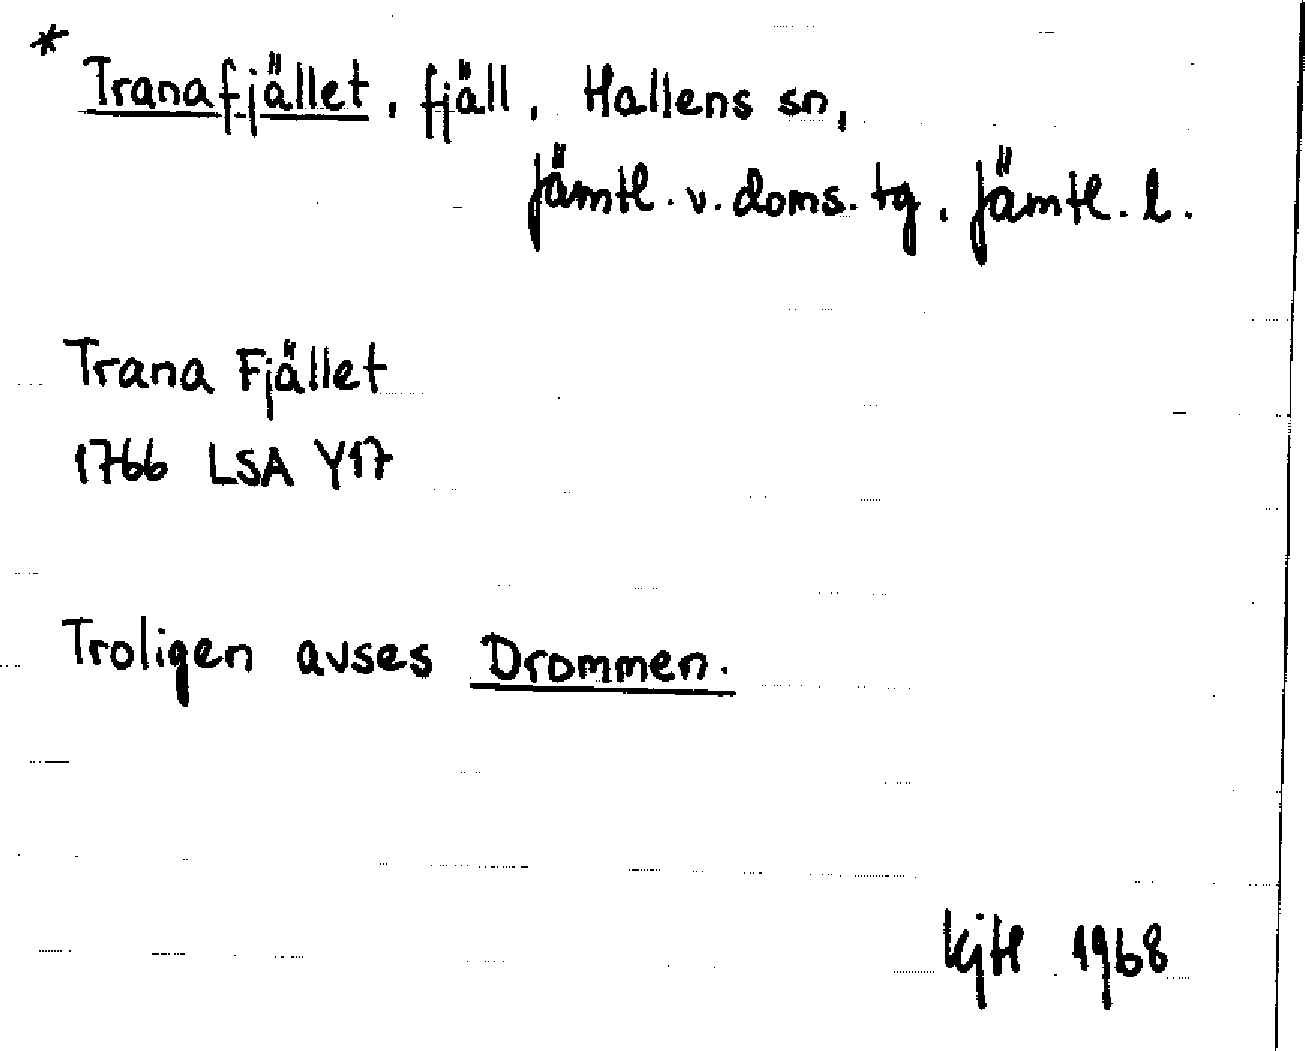 * Tranafjället, fjäll, Hallens sn,
Jämtl. v. doms. tg, Jämtl. l.
Trana Fjället
1766 LSA Y17
Troligen avses Drommen.
1968